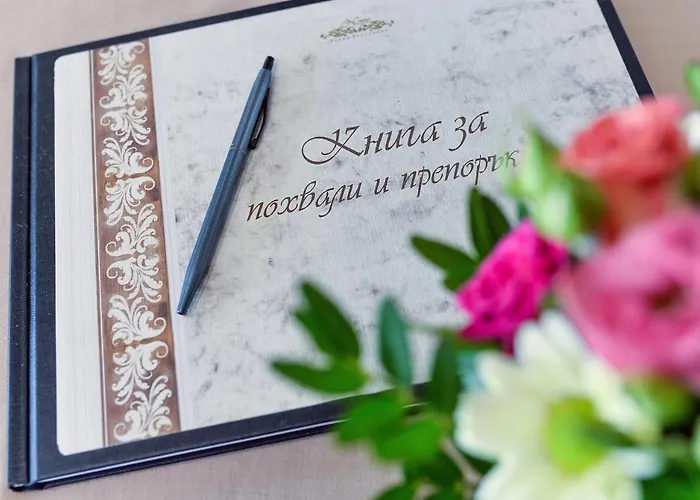 Книга за
похвали и препорък